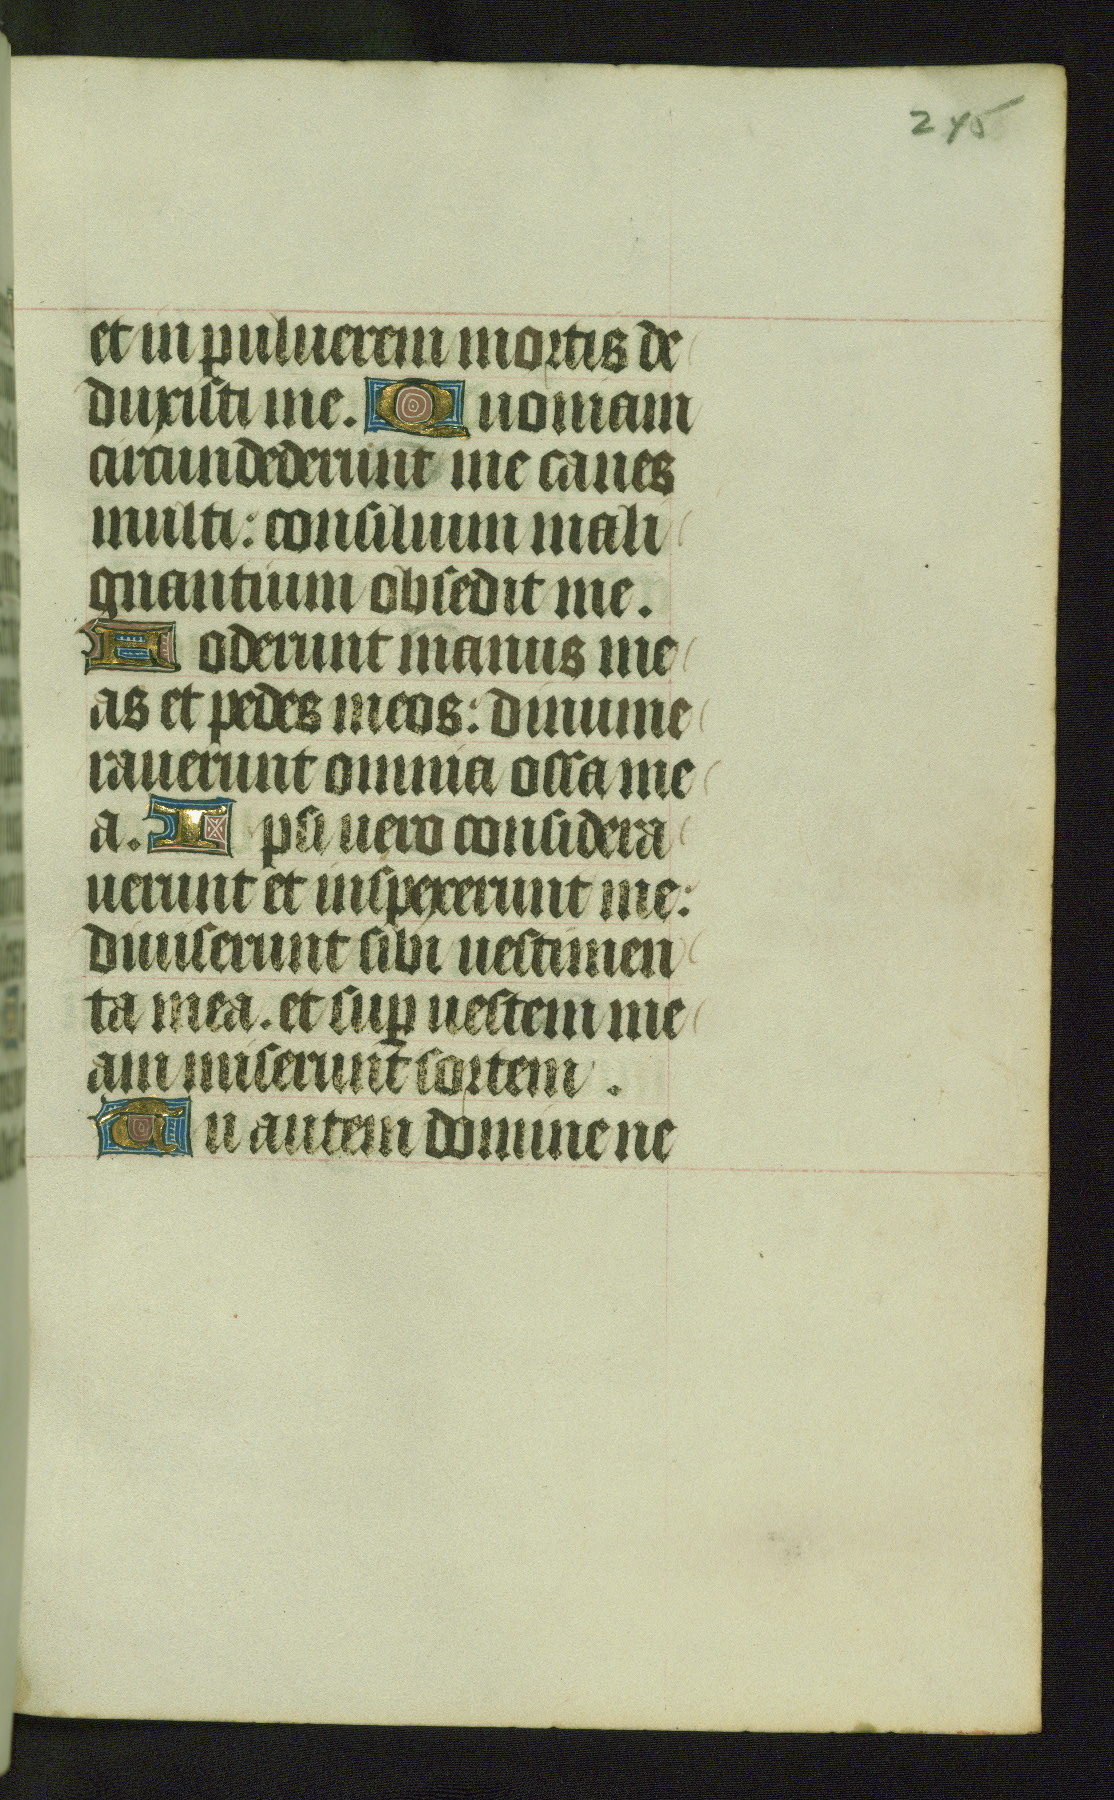 245
et in puluerem mortis de
duxisti me. Quoniam
circundederunt me canes
multi: consilium mali
gnantium obsedit me.
Foderunt manus me
as et pedes meos: dinume
rauerunt omnia ossa me
a. Ipsi uero considera
uerunt et inspexerunt me:
diuiserunt sibi uestimen
ta mea. et sup uestem me
am miserunt sortem.
Tu autem domine ne